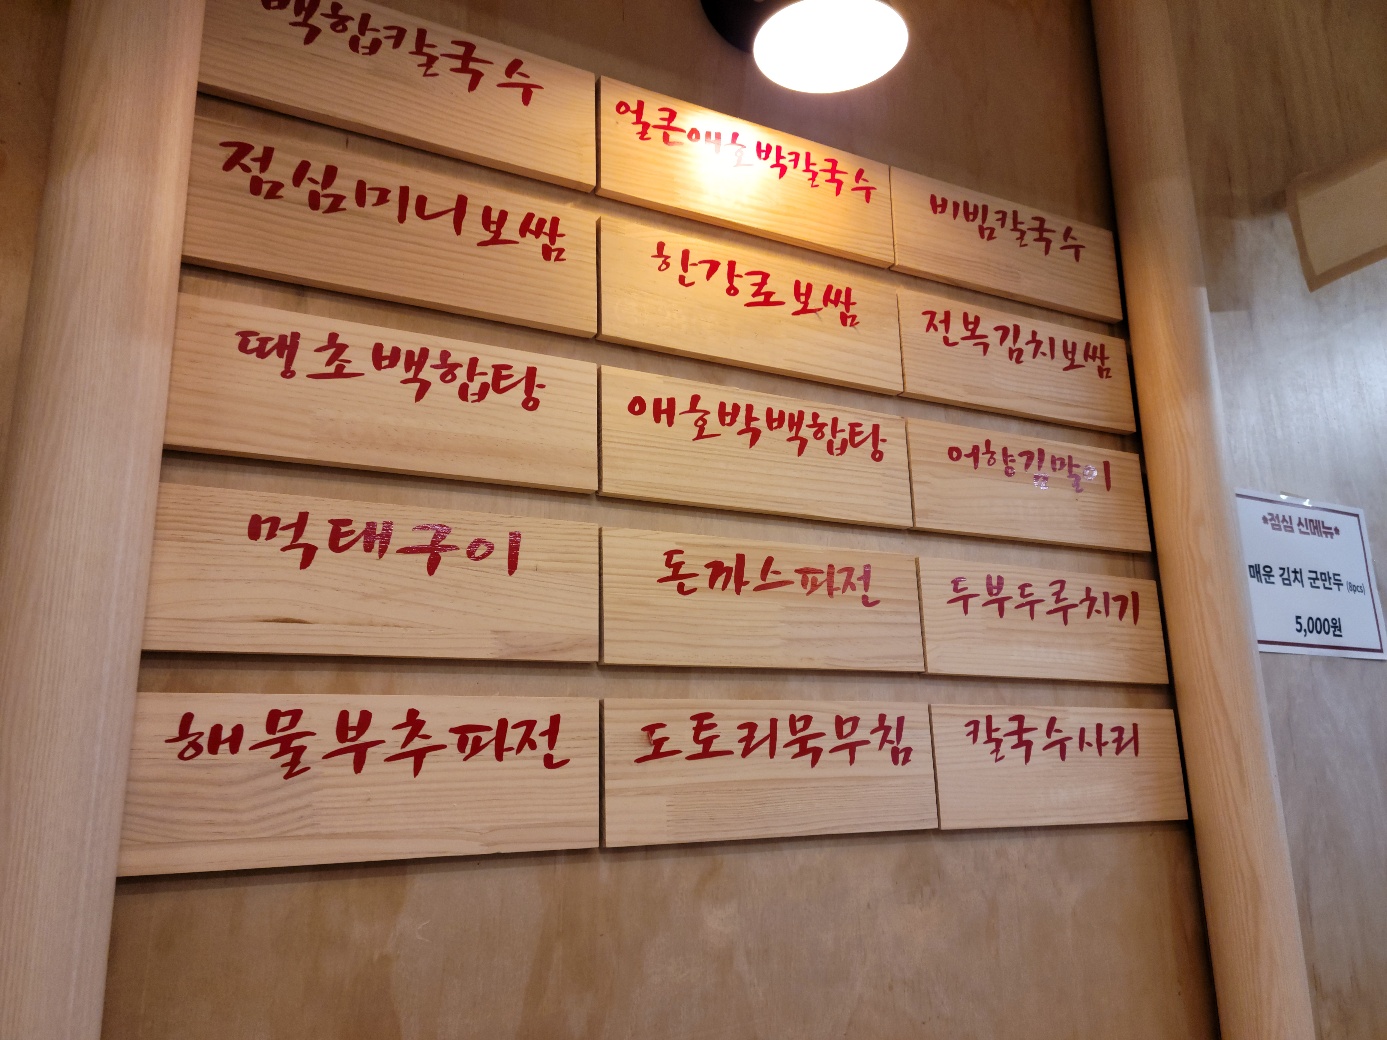 백합칼국수
얼큰애호박칼국수
비빔칼국수
점심미니보쌈
한강로보쌈
전복김치보쌈
땡초백합탕
애호박백합탕
어향김말이
먹태구이
돈까스파전
두부두루치기
해물부추파전
도토리묵무침
칼국수사리
*점심 신메뉴*
매운 김치 군만두 (8pcs)
5,000원